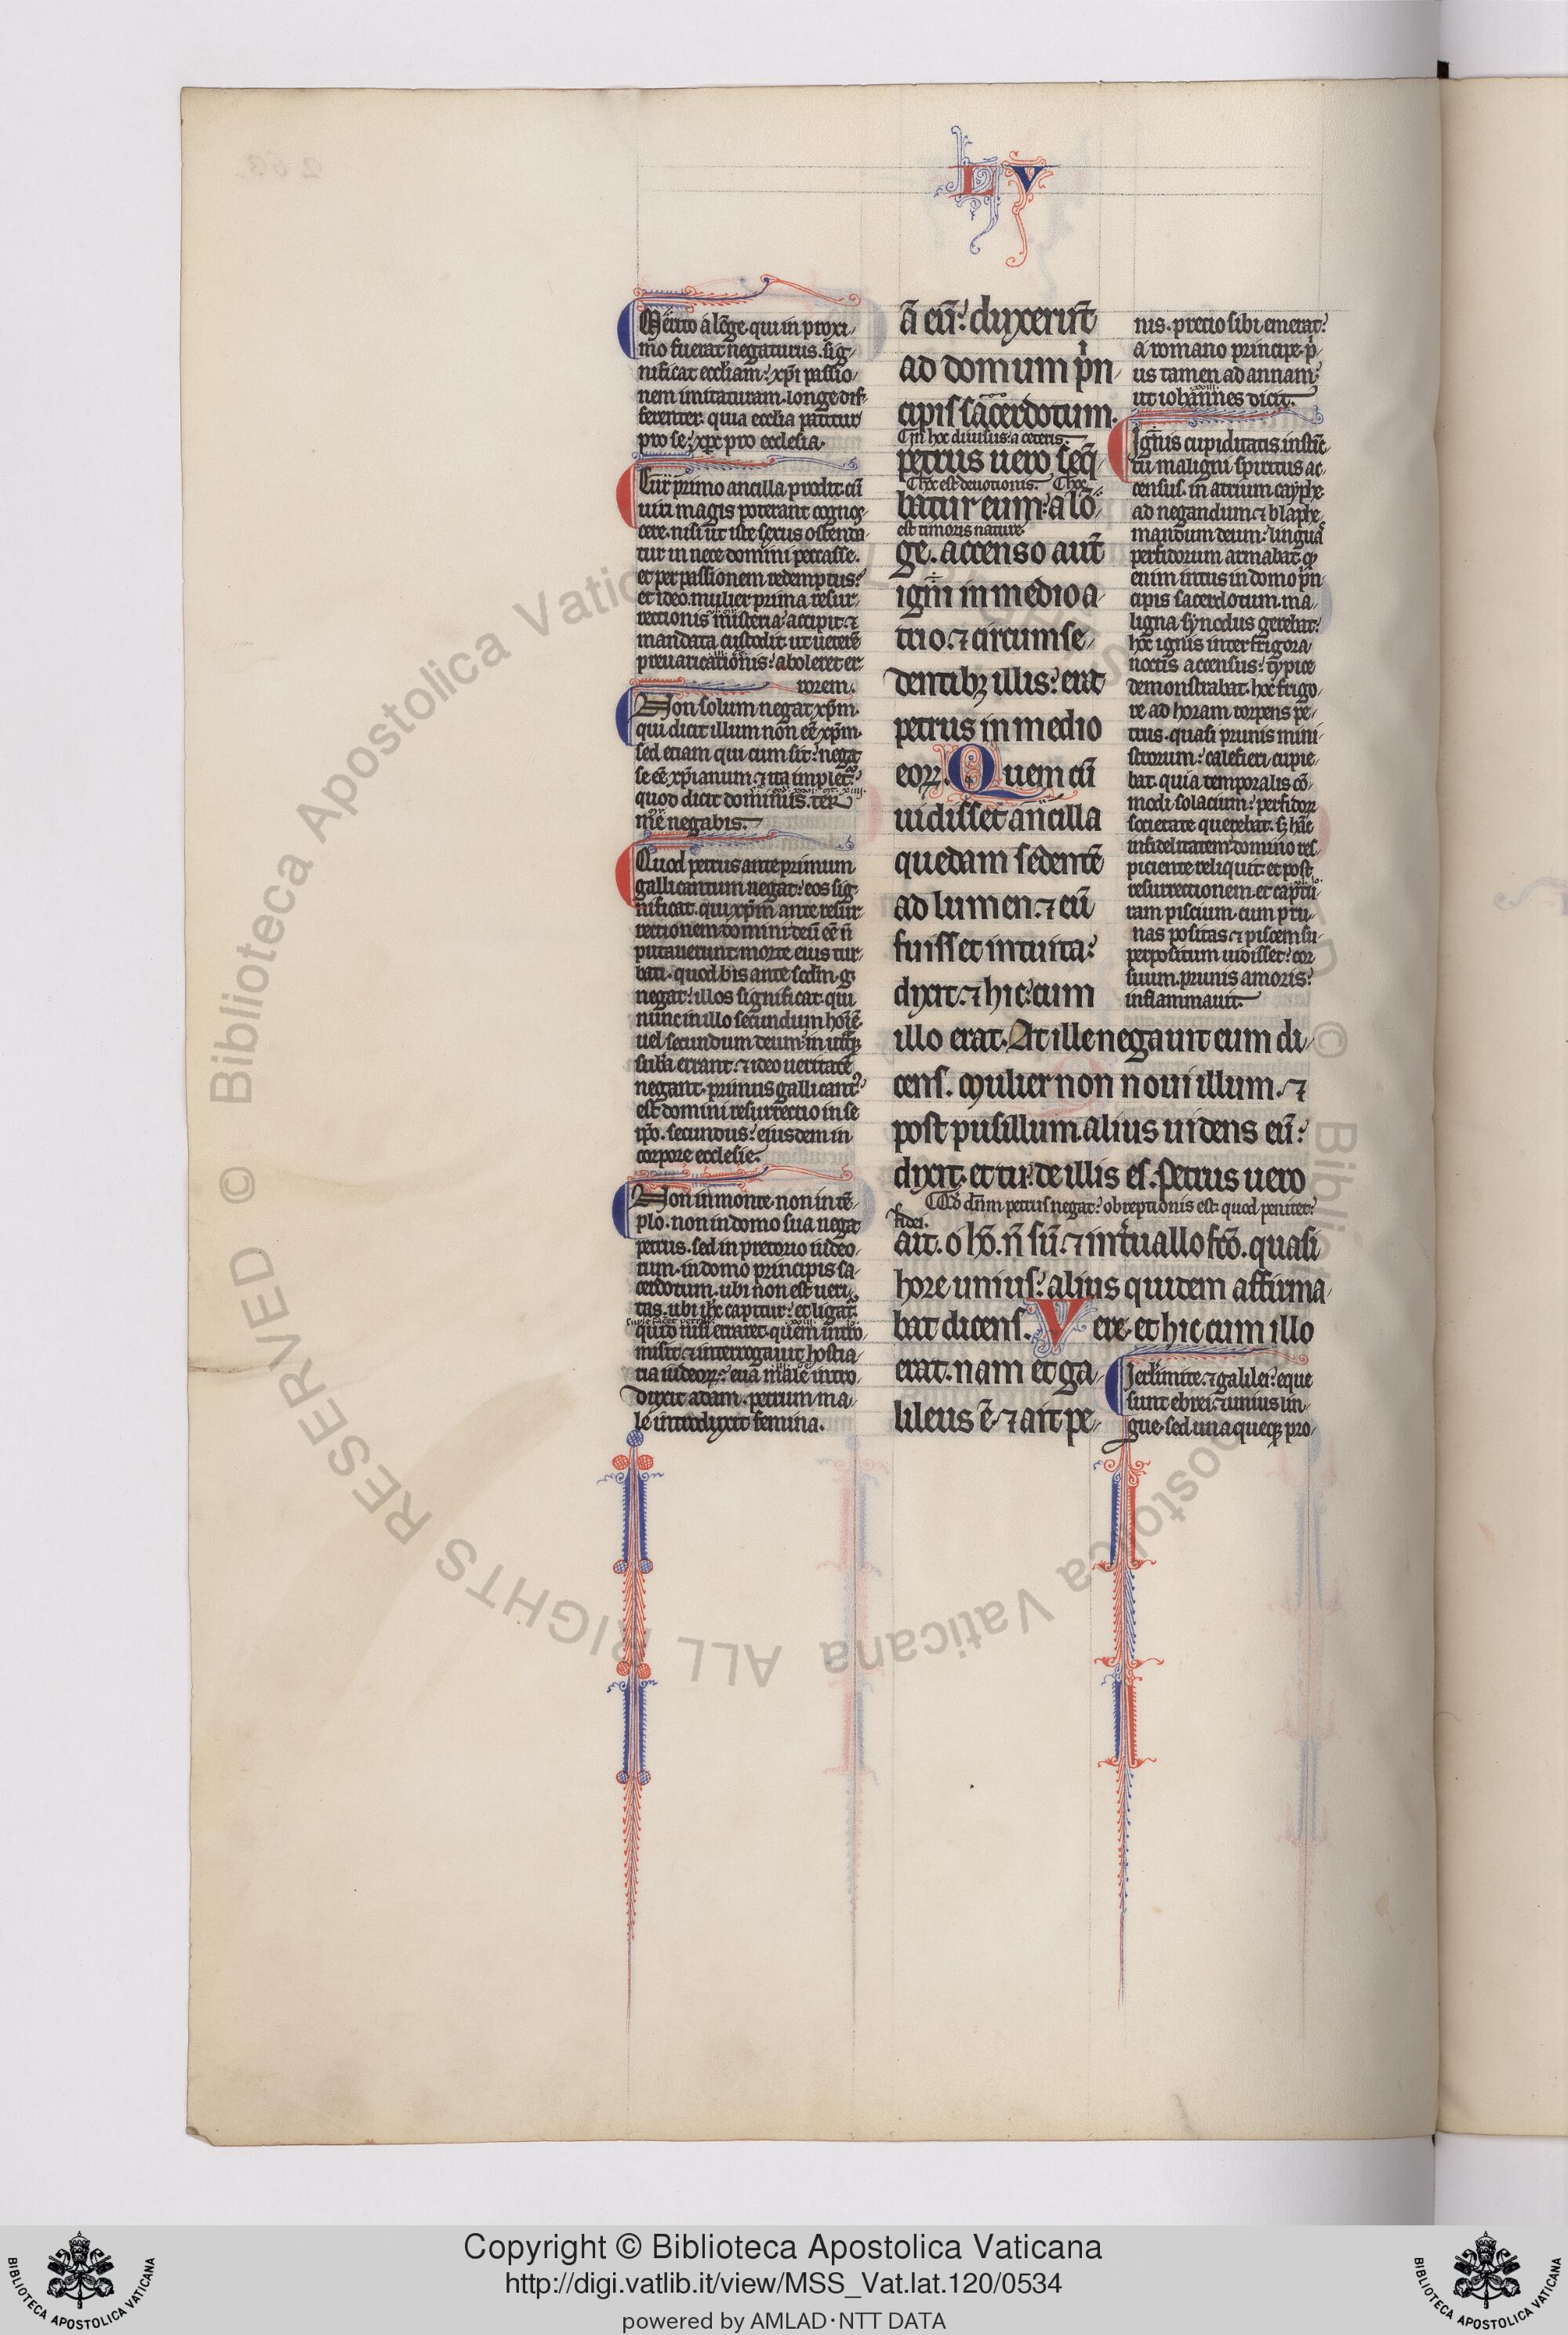 L V
Merito a lo̅ge. qui in proxi
mo fuerat negaturus. sig
nificat eccl̅iam: xp̅i passio
nem imitaturam. longe dif
ferenter. quia eccl̅ia patitur
pro se: xp̅c pro ecclesia.
Cur primo ancilla prodit. cu̅
uiri magis poterant cognos
cere. nisi ut iste sexus ostenda
tur in nece domini peccasse.
et per passionem redemptus:
et ideo mulier prima resur
rectionis misteria accipit. ⁊
mandata custodit. ut uetere̅
preuaricationis: aboleret er
rorem.
Non solum negat xp̅m.
qui dicit illum non ee̅ xp̅m.
sed etiam qui cum sit: negat
se ee̅ xp̅ianum. ⁊ ita implet̅.
quod dicit dominus. ter
me negabis.
Quod petrus ante primum
galli cantum negat: eos sig
nificat. qui xp̅m ante resur
rectionem domini deu̅ ee̅ n̅
putauerunt. morte eius tur
bati. quod bis ante scd̅m. g.
negat: illos significat. qui
nunc in illo secundum hoi̅e̅
uel secundum deum: in utraq;
suba̅ errant. ⁊ ideo ueritate̅
negant. primus galli cantus
est domini resurrectio in se
ip̅o. secundus: eiusdem in
corpore ecclesie.
Non in monte. non in te̅
plo. non in domo sua negat
petrus. sed in pretorio iudeo
rum. in domo principis sa
cerdotum. ubi non est ueri
tas. ubi ih̅c capitur: et ligat̅.
quid nisi erraret. quem intro
misit ⁊ interrogauit hostia
ria iudeor̅: eua male intro
duxit adam. petrum ma
le introduxit femina.
a̅ eu̅: duxerunt̅
ad domum prin
cipis sacerdotum.
In hoc diuisus a ceteris.
petrus uero seq̅
hoc est deuotionis. hoc
batur eum: a lo̅
est timoris nature.
ge. accenso aut̅
igni in medio a
trio. ⁊ circumse
dentib; illis: erat
petrus in medio
eor̅. Quem cu̅
uidisset ancilla
quedam sedente̅
ad lumen. ⁊ eu̅
fuisset intuita:
dixit. ⁊ hic: cum
illo erat. At ille negauit eum di
cens. mulier non noui illum. ⁊
post pusillum. alius uidens eu̅:
dixit. et tu. de illis es. Petrus uero
Qd̅ dn̅m petrus negat: obreptionis est: quod penitet:
fidei.
ait. o ho̅. n̅ su̅. ⁊ interuallo fco̅. quasi
hore unius: alius quidem affirma
bat dicens. Vere. et hic cum illo
erat. nam et ga
lileus e̅. ⁊ ait pe
nis. precio sibi emerat:
a romano principe. pri
us tamen ad annam:
ut iohannes dicit.
Ignis cupiditatis. instinc
tu maligni spiritus ac
census. in atrium cayphe
ad negandum ⁊ blasphe
mandum deum: lingua
perfidorum armabat. q̅
enim intus in domo prin
cipis sacerdotum. ma
ligna synodus gerebat:
hoc ignis inter frigora
noctis accensus: typice
demonstrabat. hoc frigo
re ad horam torpens pe
trus. quasi prunis mini
strorum: calefieri cupie
bat. quia temporalis co̅
modi solacium: perfidor̅
societate querebat. s; ha̅c
infidelitatem domino res
piciente reliquit. et post
resurrectionem. et captu
ram piscium. cum pru
nas positas ⁊ piscem su
perpositum uidisset: cor
suum. prunis amoris:
inflammauit.
Ierl̅imite ⁊ galilei: eque
sunt ebrei ⁊ unius lin
gue. sed una queq; pro
Copyright © Biblioteca Apostolica Vaticana
http://digi.vatlib.it/view/MSS_Vat.lat.120/0534
powered by AMLAD·NTT DATA
BIBLIOTECA APOSTOLICA VATICANA
BIBLIOTECA APOSTOLICA VATICANA
© Biblioteca Apostolica Vaticana ALL RIGHTS RESERVED